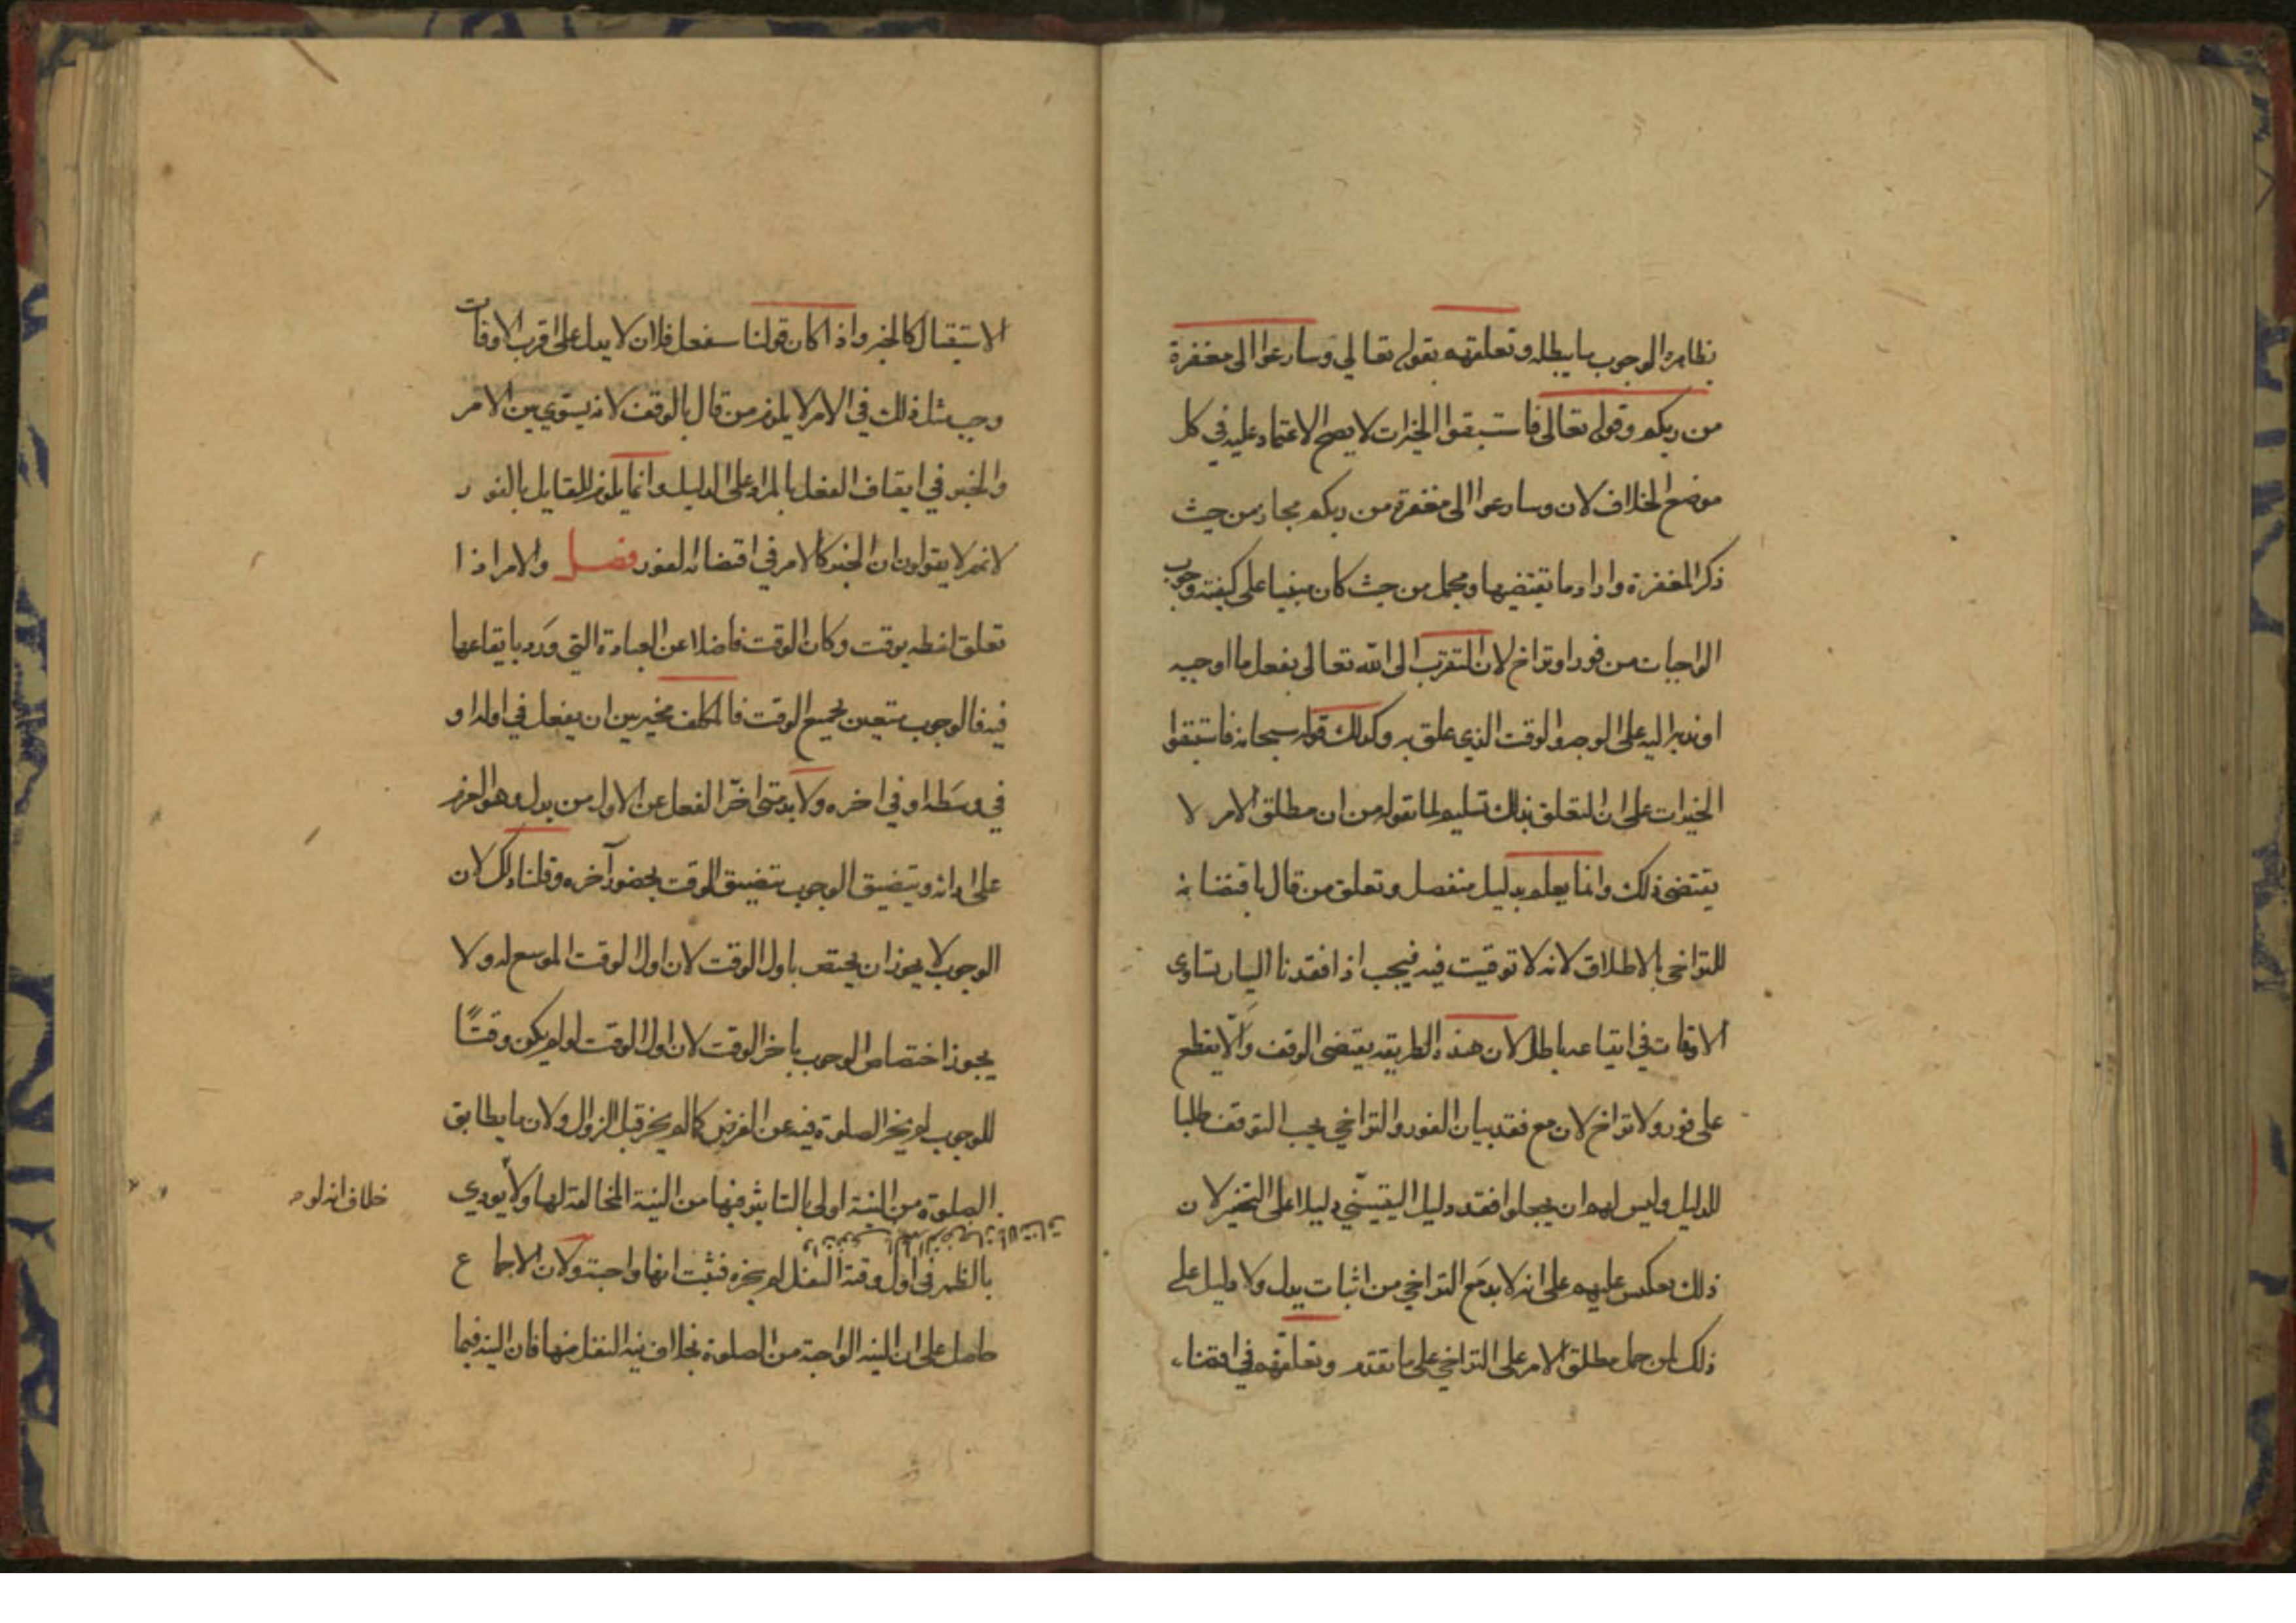 بظاهره الوجوب ما يبطله وتعلقهم بقوله تعالى وسارعوا الى مغفرة
من ربكم وقوله تعالى فاستبقوا الخيرات لا يصح الاعتماد عليه في كل
موضع الخلاف لان وسارعوا الى مغفرة من ربكم مجاز من حيث
ذكر المغفرة واراد ما يقتضيها ومجمل من حيث كان مبنيا على كيفية وجوب
الواجبات من فور او تراخ لان التقرب الى الله تعالى بفعل ما اوجبه
او ندب اليه على الوجه والوقت الذي علق به وكذلك قوله سبحانه فاستبقوا
الخيرات على ان التعلق بذلك تسليم لما نقوله من ان مطلق الامر لا
يقتضي ذلك وانما يعلم بدليل منفصل وتعلق من قال باقتضائه
للتراخي بالاطلاق لانه لا توقيت فيه فيجب اذا فقدنا البيان تساوي
الاوقات في ايقاعه باطل لان هذه الطريقة يقتضي الوقف والا يقطع
على فور ولا تراخ لان مع فقد بيان الفور والتراخي يجب التوقف طلبا
للدليل وليس لهم ان يجعلوا فقد دليل التعيين دليلا على التخيير لان
ذلك يعكس عليهم على انه لا بد مع التراخي من اثبات بدل ولا دليل على
ذلك لمن حمل مطلق الامر على التراخي على ما تقدم وتعلقهم في اقتضاء
الاستقبال كالخبر واذا كان قولنا سيفعل فلان لا يدل على اقرب الاوقات
وجب مثل ذلك في الامر لا يلزم من قال بالوقف لانه يسوي بين الامر
والخبر في ايقاف الفعل بالمراد على الدليل وانما يلزم للقايل بالفور
لانهم لا يقولون ان الخبر كالامر في اقتضائه الفور فصل والامر اذا
تعلق لفظه بوقت وكان الوقت فاضلا عن العبادة التي ورد بايقاعها
فيه فالوجوب متعين بجميع الوقت فالمكلف مخير بين ان يفعل في اوله او
في وسطه او في اخره ولا بد متى اخر الفعل عن الاول من بدل وهو العزم
على ادائه ويتضيق الوجوب بتضيق الوقت بحضور آخره وقلنا ذلك لان
الوجوب لا يجوز ان يختص باول الوقت لان اول الوقت الموسع له ولا
يجوز اختصاص الوجوب باخر الوقت لان اول الوقت لو لم يكن وقتًا
للوجوب لم يجز الصلوة فيه عن الفرض كما لم يجز قبل الزوال ولان ما يطابق
الصلوة من النية اولى بالتاثير فيها من النية المخالفة لها ولا
خلاف انه لو
بالظهر في اول وقته النفل لم يجزه فثبت انها واجبة ولان الاجماع
حاصل على ان النية الواجبة من الصلوة بخلاف نية النفل منها فان النية فيما